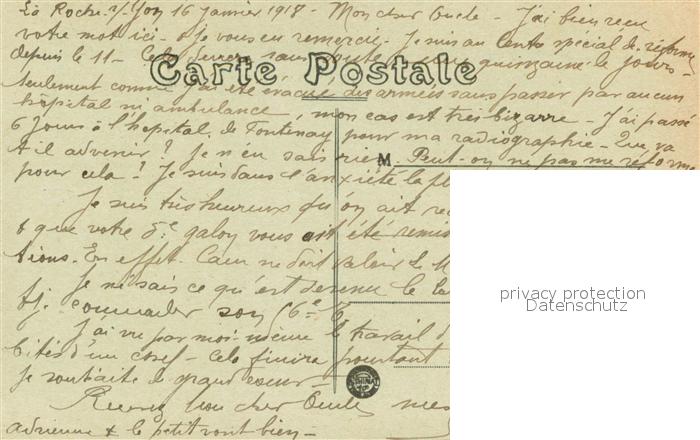 La Roche s/ Yon 16 janvier 1918 - Mon cher Oncle - J'ai bien reçu
votre mot ici - & je vous en remercie - Je suis au Centre spécial de réforme
depuis le 11 - Cela durera sans doute une quinzaine de jours -
Carte Postale
Seulement comme j'ai été évacué des armées sans passer par aucun
hôpital ni ambulance, mon cas est très bizarre - J'ai passé
6 jours à l'hôpital de Fontenay pour ma radiographie - Que va
t-il advenir? Je n'en sais rien. Peut-on ne pas me réformer
M.
pour cela? Je suis dans l'anxiété la
Je suis très heureux qu'on ait
& que votre 5e galon vous ait été remis
tions. En effet Caen ne doit valoir le M
Je ne sais ce qu'est devenu le
commander son 66e
J'ai vu par moi-même le travail d
d'un chef - Cela finira pourtant
Je souhaite de grand cœur -
Recevez mon cher Oncle mes
Adrienne & le petit vont bien -
privacy protection
Datenschutz